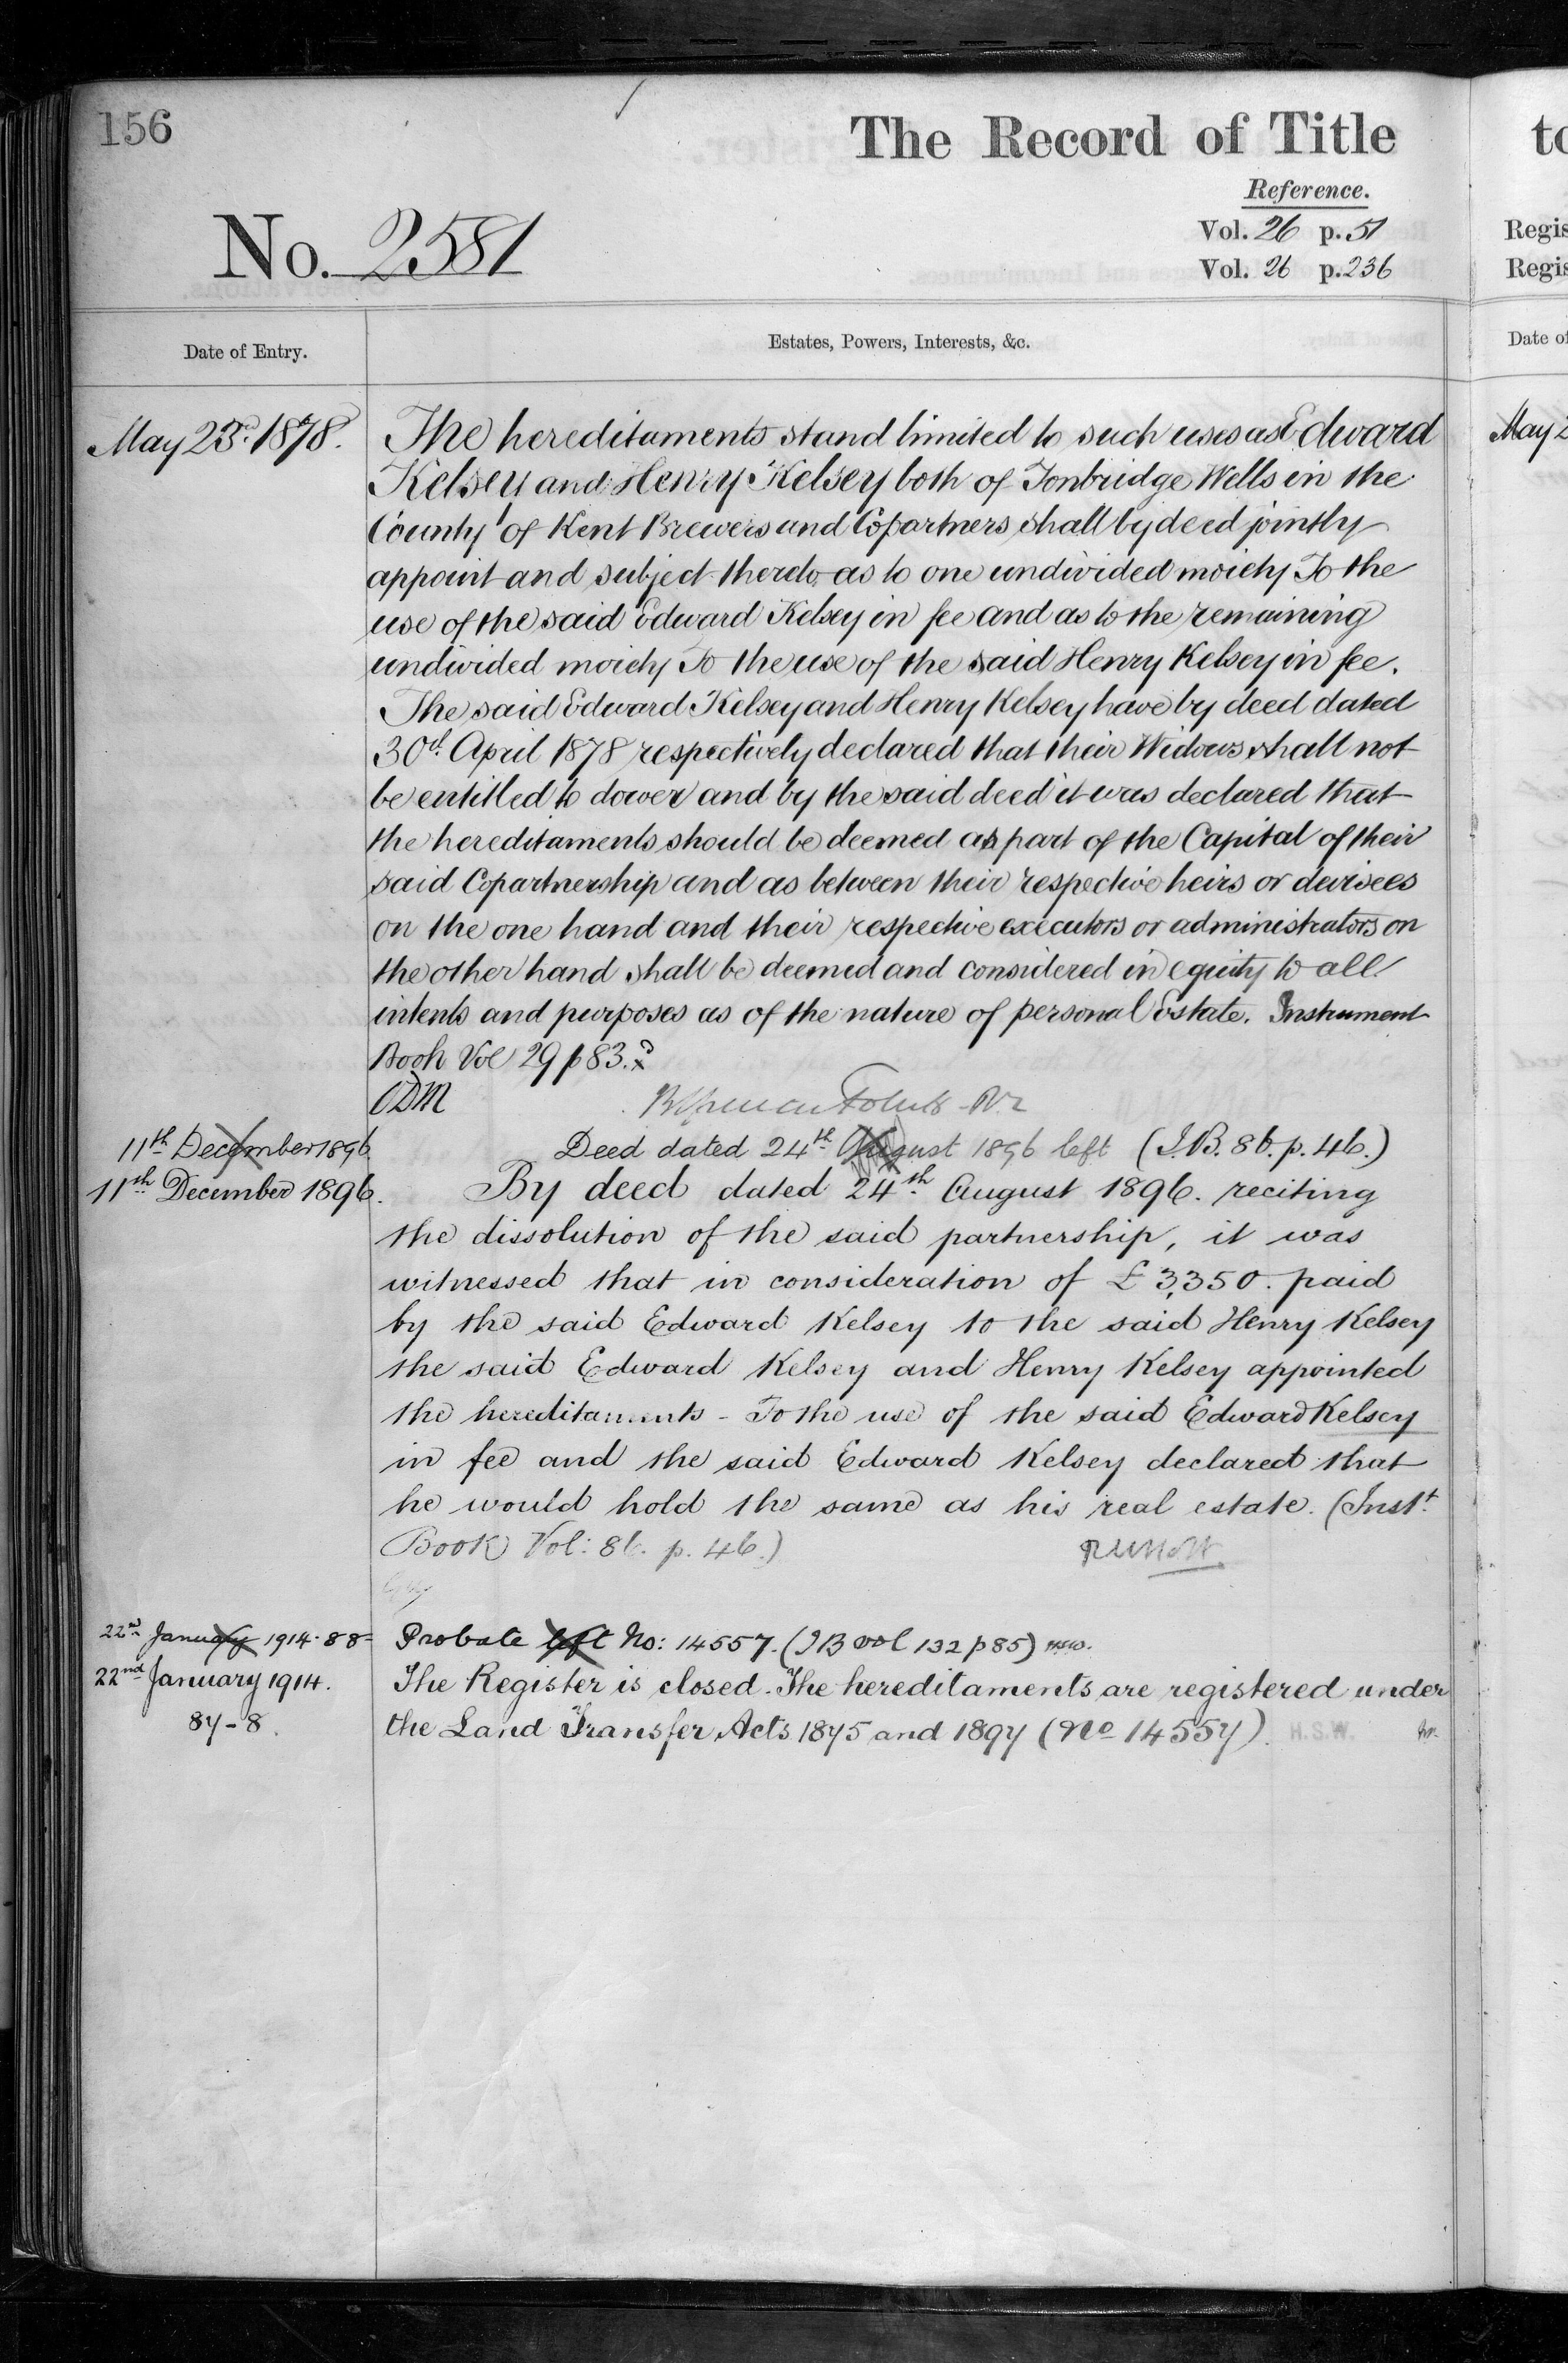 156
The Record of Title
Reference.
No. 2581
Vol. 26 p. 51
Vol. 26 p. 236
Date of Entry.
Estates, Powers, Interests, &c.
May 23d. 1878.
The hereditaments stand limited to such uses as Edward
Kelsey and Henry Kelsey both of Tonbridge Wells in the
County of Kent Brewers and Copartners shall by deed jointly
appoint and subject thereto as to one undivided moiety To the
use of the said Edward Kelsey in fee and as to the remaining
undivided moiety To the use of the said Henry Kelsey in fee.
The said Edward Kelsey and Henry Kelsey have by deed dated
30th April 1878 respectively declared that their Widows shall not
be entitled to dower and by the said deed it was declared that
the hereditaments should be deemed as part of the Capital of their
said Copartnership and as between their respective heirs or devisees
on the one hand and their respective executors or administrators on
the other hand shall be deemed and considered in equity to all
intents and purposes as of the nature of personal Estate. Instrument
Book Vol 29 p 83.
11th December 1896.
Deed dated 24th August 1896 left (I.B. 86. p. 46.)
11th December 1896.
By deed dated 24th August 1896. reciting
the dissolution of the said partnership, it was
witnessed that in consideration of £3,350. paid
by the said Edward Kelsey to the said Henry Kelsey
the said Edward Kelsey and Henry Kelsey appointed
the hereditaments - To the use of the said Edward Kelsey
in fee and the said Edward Kelsey declared that
he would hold the same as his real estate. (Instt.
Book Vol: 86. p. 46.)
22nd January 1914. 88-
Probate left No: 14557. (IB vol 132 p 85)
22nd January 1914.
87-8.
The Register is closed. The hereditaments are registered under
the Land Transfer Acts 1875 and 1897 (No 14557). H.S.W.
to
Regis
Regis
Date of
May 2